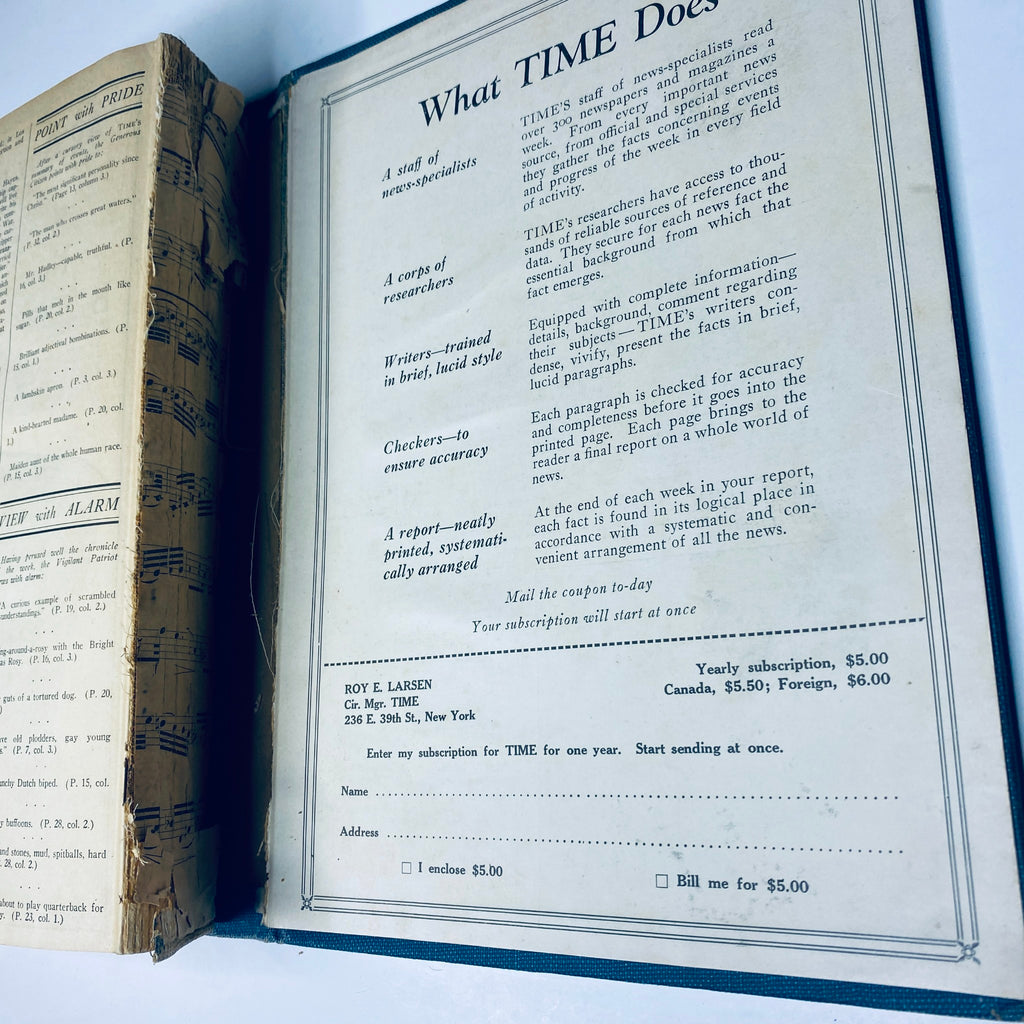 POINT with PRIDE
After a cursory view of TIME'S
summary of events, the Generous
Citizen points with pride to:
"The most significant personality since
Christ." (Page 13, column 3.)
"The man who crosses great waters."
(P. 32, col. 2.)
Mr. Hadley—capable, truthful. (P.
16, col. 3.)
Pills that melt in the mouth like
sugar. (P. 20, col. 2.)
Brilliant adjectival bombinations. (P.
15, col. 1.)
A lambskin apron. (P. 3, col. 3.)
A kind-hearted madame. (P. 20, col.
1.)
Maiden aunt of the whole human race.
(P. 15, col. 3.)
VIEW with ALARM
Having perused well the chronicle
the week, the Vigilant Patriot
with alarm:
"A curious example of scrambled
(P. 19, col. 2.)
with the Bright
Rosy. (P. 16, col. 3.)
guts of a tortured dog. (P. 20,
old plodders, gay young
(P. 7, col. 3.)
Dutch biped. (P. 15, col.
buffoons. (P. 28, col. 2.)
and stones, mud, spitballs, hard
28, col. 2.)
about to play quarterback for
(P. 23, col. 1.)
What TIME Does
A staff of
news-specialists
TIME'S staff of news-specialists read
over 300 newspapers and magazines a
week. From every important news
source, from official and special services
they gather the facts concerning events
and progress of the week in every field
of activity.
A corps of
researchers
TIME's researchers have access to thou-
sands of reliable sources of reference and
data. They secure for each news fact the
essential background from which that
fact emerges.
Writers—trained
in brief, lucid style
Equipped with complete information—
details, background, comment regarding
their subjects—TIME's writers con-
dense, vivify, present the facts in brief,
lucid paragraphs.
Checkers—to
ensure accuracy
Each paragraph is checked for accuracy
and completeness before it goes into the
printed page. Each page brings to the
reader a final report on a whole world of
news.
A report—neatly
printed, systemati-
cally arranged
At the end of each week in your report,
each fact is found in its logical place in
accordance with a systematic and con-
venient arrangement of all the news.
Mail the coupon to-day
Your subscription will start at once
ROY E. LARSEN
Cir. Mgr. TIME
236 E. 39th St., New York
Yearly subscription, $5.00
Canada, $5.50; Foreign, $6.00
Enter my subscription for TIME for one year. Start sending at once.
Name
Address
□ I enclose $5.00
□ Bill me for $5.00